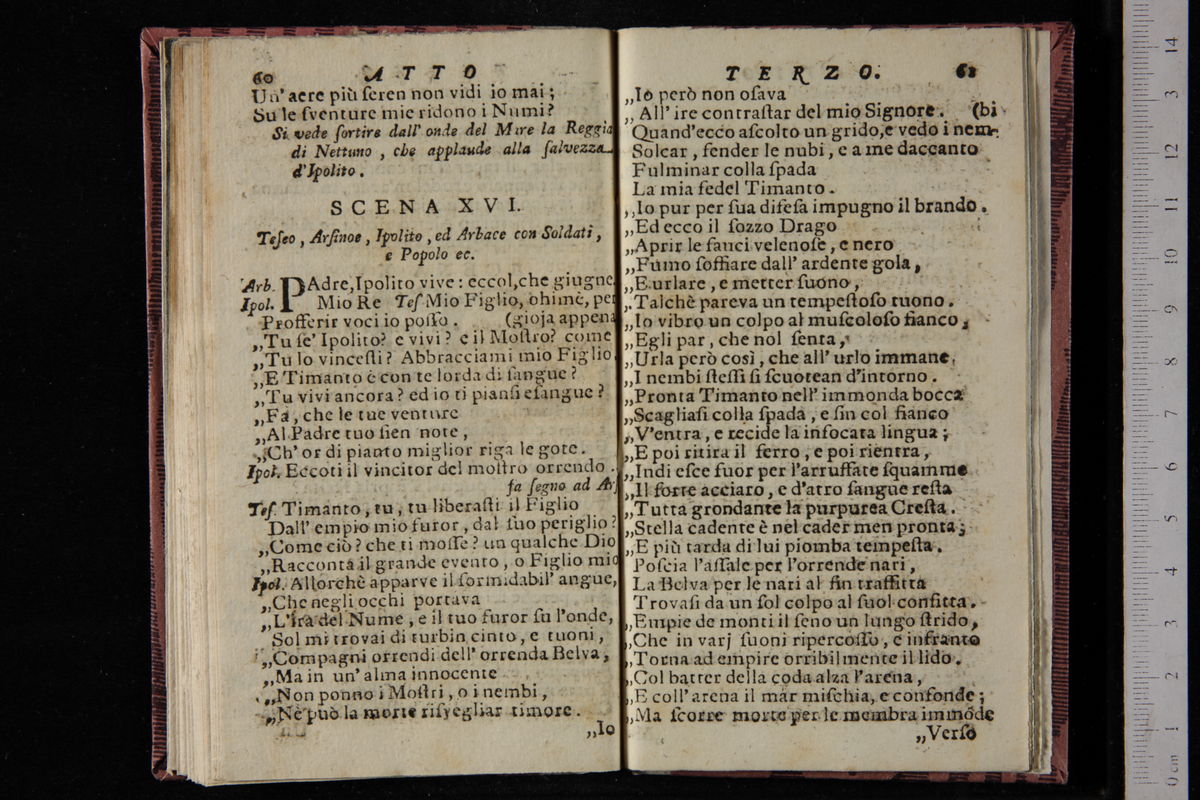 60 ATTO
Un' aere più ſeren non vidi io mai;
Su le ſventure mie ridono i Numi?
Si vede ſortire dall' onde del Mare la Reggia
di Nettuno, che applaude alla ſalvezza
d'Ipolito.
SCENA XVI.
Teſeo, Arſinoe, Ipolito, ed Arbace con Soldati,
e Popolo ec.
Arb. PAdre, Ipolito vive: eccol, che giugne.
Ipol. Mio Re Teſ. Mio Figlio, ohimè, per
Profferir voci io poſſo. (gioja appena
„Tu ſe' Ipolito? e vivi? e il Moſtro? come
„Tu lo vinceſti? Abbracciami mio Figlio.
„E Timanto è con te lorda di ſangue?
„Tu vivi ancora? ed io ti pianſi eſangue?
„Fa, che le tue venture
„Al Padre tuo ſien note,
„Ch' or di pianto miglior riga le gote.
Ipol. Eccoti il vincitor del moſtro orrendo.
fa ſegno ad Arſ
Teſ. Timanto, tu, tu liberaſti il Figlio
Dall' empio mio furor, dal ſuo periglio?
„Come ciò? che ti moſſe? un qualche Dio
„Racconta il grande evento, o Figlio mio
Ipol. Allorchè apparve il formidabil' angue,
„Che negli occhi portava
„L'Ira del Nume, e il tuo furor ſu l'onde,
Sol mi trovai di turbin cinto, e tuoni,
„Compagni orrendi dell' orrenda Belva,
„Ma in un' alma innocente
„Non ponno i Moſtri, o i nembi,
„Nè può la morte riſvegliar timore.
„Io
TERZO. 61
„Io però non oſava
„All' ire contraſtar del mio Signore. (bi
Quand'ecco aſcolto un grido, e vedo i nem-
Solcar, fender le nubi, e a me daccanto
Fulminar colla ſpada
La mia fedel Timanto.
„Io pur per ſua difeſa impugno il brando.
„Ed ecco il ſozzo Drago
„Aprir le fauci velenoſe, e nero
„Fumo ſoffiare dall' ardente gola,
„E urlare, e metter ſuono,
„Talchè pareva un tempeſtoſo tuono.
„Io vibro un colpo al muſcoloſo fianco;
„Egli par, che nol ſenta,
„Urla però così, che all' urlo immane,
„I nembi ſteſſi ſi ſcuotean d'intorno.
„Pronta Timanto nell' immonda bocca
„Scagliaſi colla ſpada, e fin col fianco
„V'entra, e recide la infocata lingua;
„E poi ritira il ferro, e poi rientra,
„Indi eſce fuor per l'arruffate ſquamme
„Il forte acciaro, e d'atro ſangue reſta
„Tutta grondante la purpurea Creſta.
„Stella cadente è nel cader men pronta;
„E più tarda di lui piomba tempeſta.
Poſcia l'aſſale per l'orrende nari,
La Belva per le nari al fin traffitta
Trovaſi da un ſol colpo al ſuol confitta.
„Empie de monti il ſeno un lungo ſtrido,
„Che in varj ſuoni ripercoſſo, e infranto
„Torna ad empire orribilmente il lido.
„Col batter della coda alza l'arena,
„E coll' arena il mar miſchia, e confonde;
„Ma ſcorre morte per le membra immõde
„Verſo